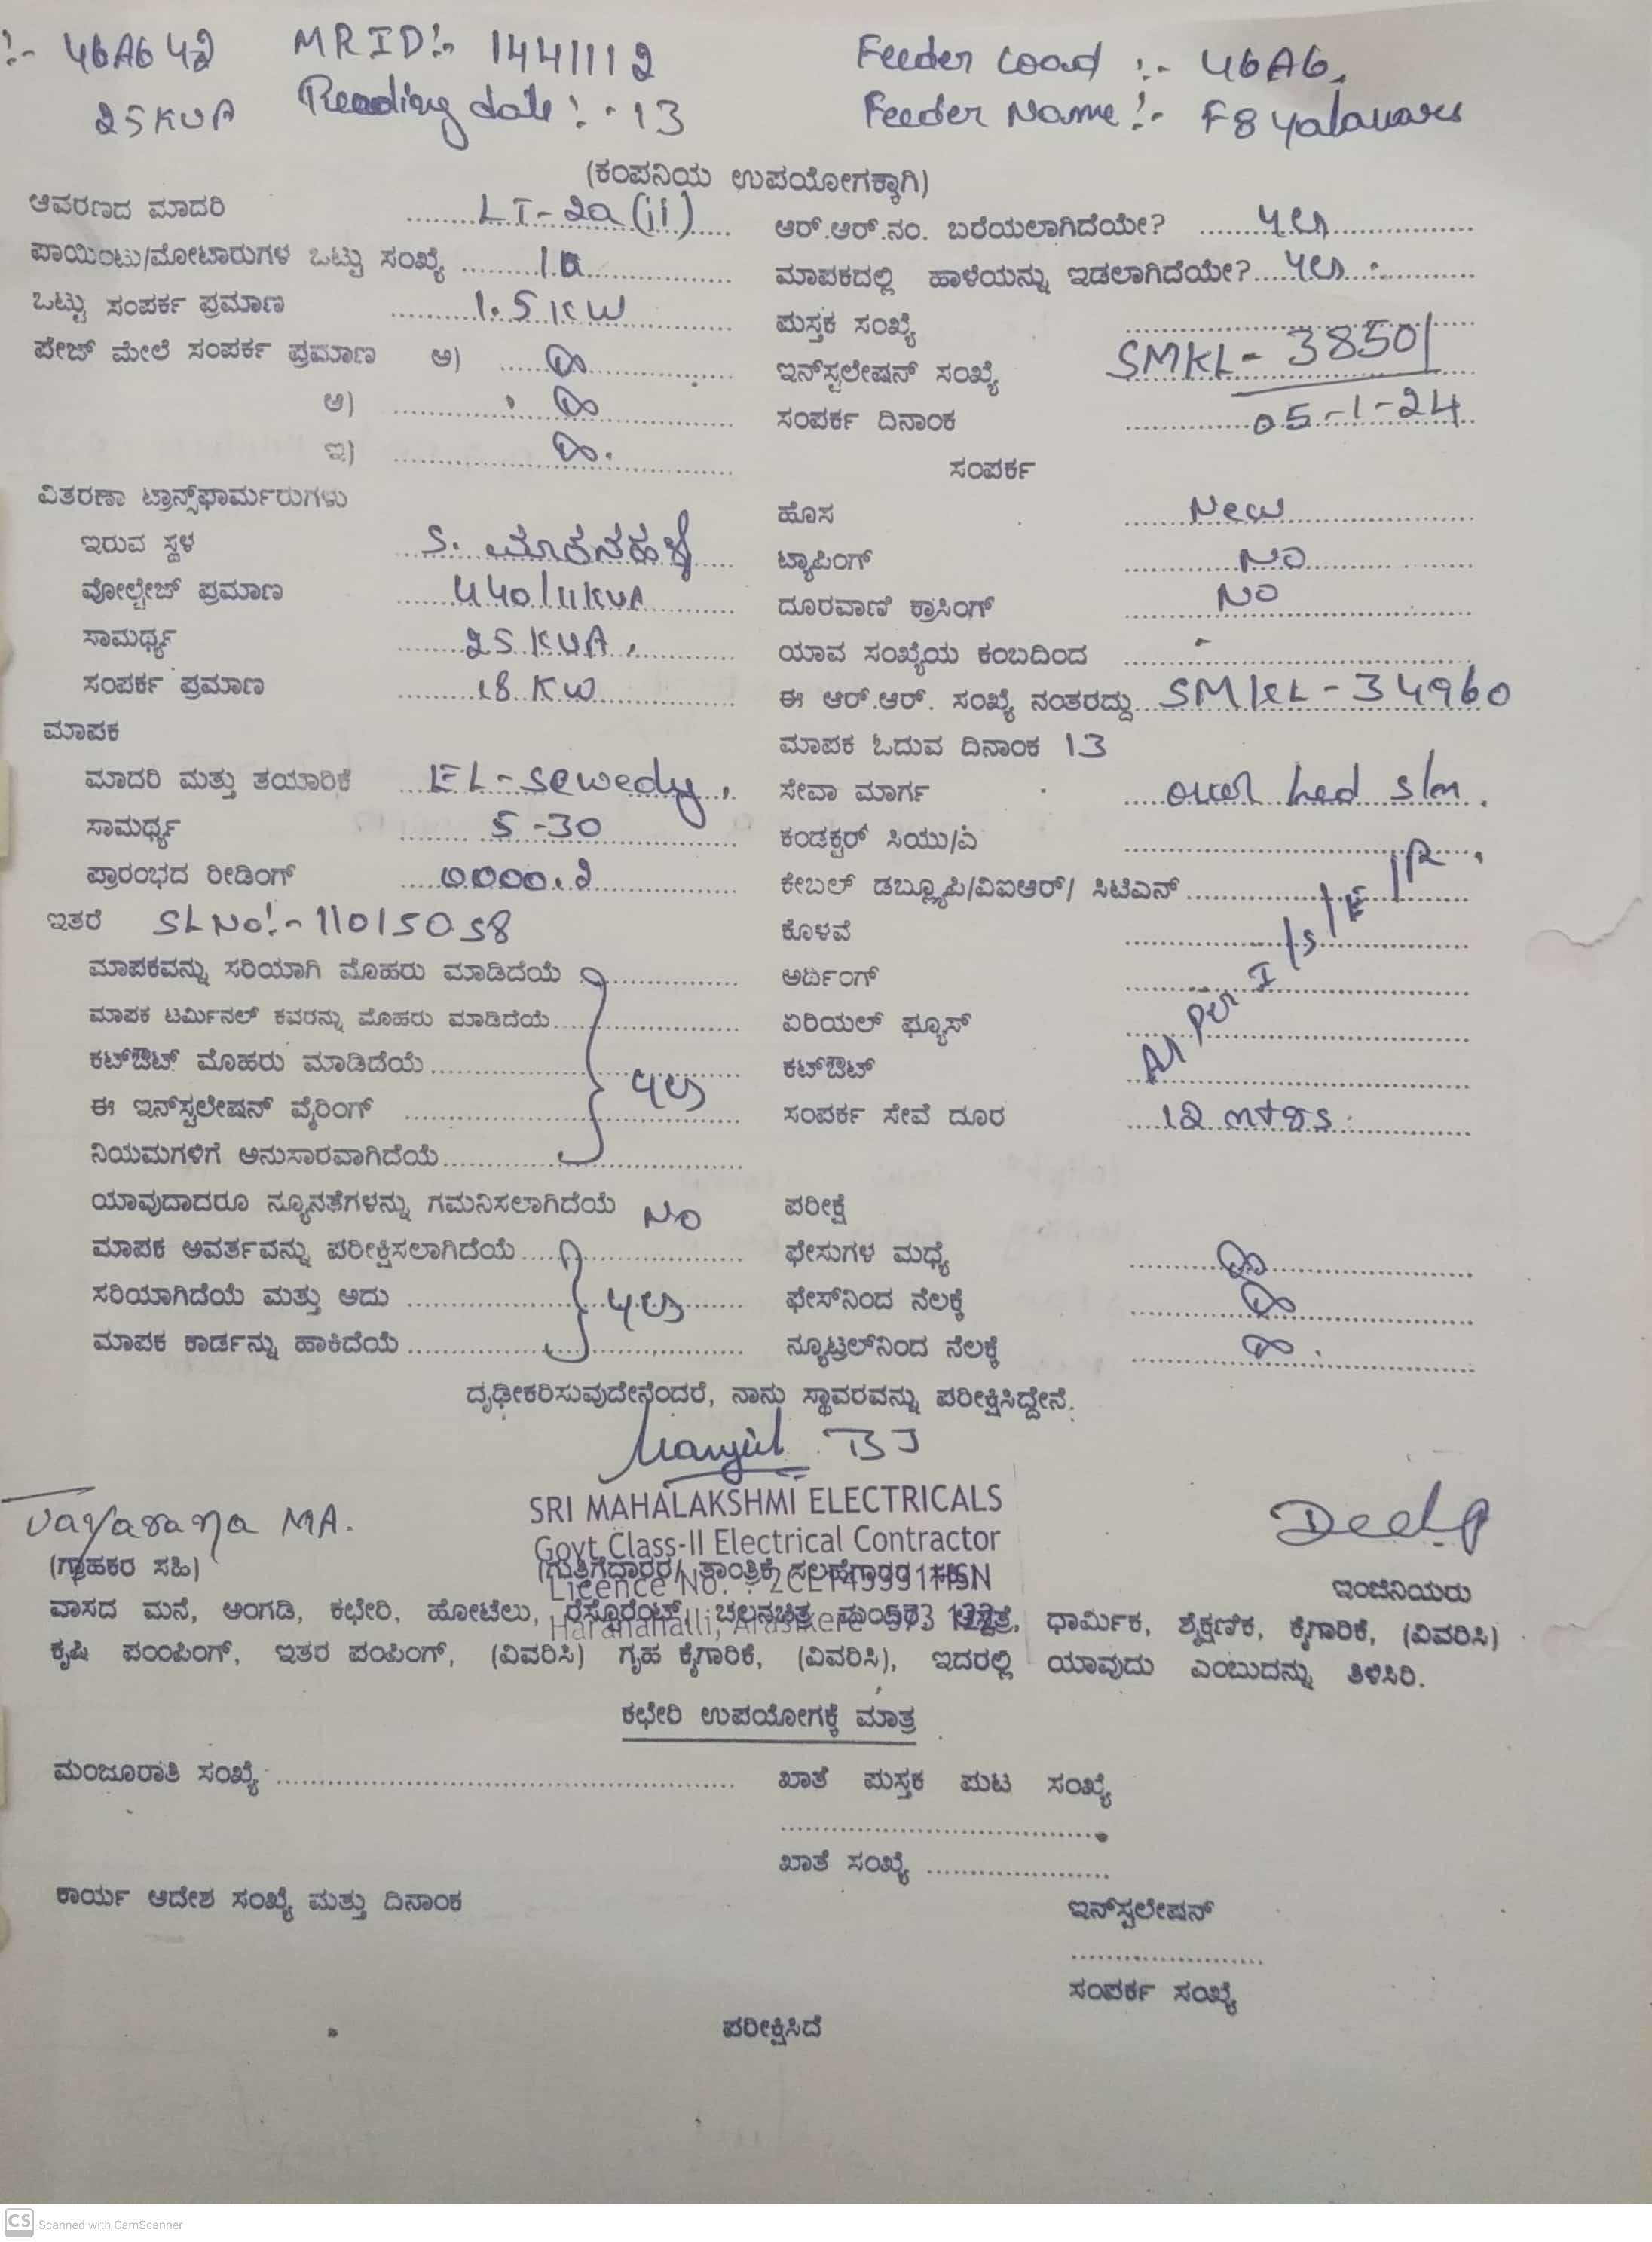 :- 46A642 MRID:- 1441112 Feeder coad :- 46A6,
25KVA Reading date:- 13 Feeder Name:- F8 yalavare
(ಕಂಪನಿಯ ಉಪಯೋಗಕ್ಕಾಗಿ)
ಆವರಣದ ಮಾದರಿ ........LT-2a(ii)..... ಆರ್.ಆರ್.ನಂ. ಬರೆಯಲಾಗಿದೆಯೇ? ........yes
ಪಾಯಿಂಟು/ಮೋಟಾರುಗಳ ಒಟ್ಟು ಸಂಖ್ಯೆ ......... ಮಾಪಕದಲ್ಲಿ ಹಾಳೆಯನ್ನು ಇಡಲಾಗಿದೆಯೇ?....yes
ಒಟ್ಟು ಸಂಪರ್ಕ ಪ್ರಮಾಣ .........1.5KW ಪುಸ್ತಕ ಸಂಖ್ಯೆ
ಪೇಜ್ ಮೇಲೆ ಸಂಪರ್ಕ ಪ್ರಮಾಣ ಅ) ...... ಇನ್‌ಸ್ಟಲೇಷನ್ ಸಂಖ್ಯೆ SMKL-38501
ಆ) ........ ಸಂಪರ್ಕ ದಿನಾಂಕ ........05-1-24
ಇ) ........ ಸಂಪರ್ಕ
ವಿತರಣಾ ಟ್ರಾನ್ಸ್‌ಫಾರ್ಮರುಗಳು ಹೊಸ ........New
ಇರುವ ಸ್ಥಳ ....S. ಮಾಕನಹಳ್ಳಿ ಟ್ಯಾಪಿಂಗ್ ........NO
ವೋಲ್ಟೇಜ್ ಪ್ರಮಾಣ ......440/11KVA ದೂರವಾಣಿ ಕ್ರಾಸಿಂಗ್ ........NO
ಸಾಮರ್ಥ್ಯ ........25KVA. ಯಾವ ಸಂಖ್ಯೆಯ ಕಂಬದಿಂದ ........-
ಸಂಪರ್ಕ ಪ್ರಮಾಣ ........18KW ಈ ಆರ್.ಆರ್. ಸಂಖ್ಯೆ ನಂತರದ್ದು SMKL-34960
ಮಾಪಕ ಮಾಪಕ ಓದುವ ದಿನಾಂಕ 13
ಮಾದರಿ ಮತ್ತು ತಯಾರಿಕೆ ...EL-sewedy, ಸೇವಾ ಮಾರ್ಗ .....over hed s/m.
ಸಾಮರ್ಥ್ಯ ........5-30 ಕಂಡಕ್ಟರ್ ಸಿಯು/ಎ
ಪ್ರಾರಂಭದ ರೀಡಿಂಗ್ .....0000.2 ಕೇಬಲ್ ಡಬ್ಲ್ಯೂಪಿ/ವಿಐಆರ್/ ಸಿಟಿಎನ್
ಇತರೆ SLNo:-11015058 ಕೊಳವೆ
ಮಾಪಕವನ್ನು ಸರಿಯಾಗಿ ಮೊಹರು ಮಾಡಿದೆಯೆ ಅರ್ಥಿಂಗ್
ಮಾಪಕ ಟರ್ಮಿನಲ್ ಕವರನ್ನು ಮೊಹರು ಮಾಡಿದೆಯೆ ಏರಿಯಲ್ ಫ್ಯೂಸ್
ಕಟ್‌ಔಟ್ ಮೊಹರು ಮಾಡಿದೆಯೆ yes ಕಟ್‌ಔಟ್
ಈ ಇನ್‌ಸ್ಟಲೇಷನ್ ವೈರಿಂಗ್ ಸಂಪರ್ಕ ಸೇವೆ ದೂರ ....12 mtrs.
ನಿಯಮಗಳಿಗೆ ಅನುಸಾರವಾಗಿದೆಯೆ
ಯಾವುದಾದರೂ ನ್ಯೂನತೆಗಳನ್ನು ಗಮನಿಸಲಾಗಿದೆಯೆ NO ಪರೀಕ್ಷೆ
ಮಾಪಕ ಆವರ್ತವನ್ನು ಪರೀಕ್ಷಿಸಲಾಗಿದೆಯೆ ಫೇಸುಗಳ ಮಧ್ಯೆ
ಸರಿಯಾಗಿದೆಯೆ ಮತ್ತು ಅದು yes ಫೇಸ್‌ನಿಂದ ನೆಲಕ್ಕೆ
ಮಾಪಕ ಕಾರ್ಡನ್ನು ಹಾಕಿದೆಯೆ ನ್ಯೂಟ್ರಲ್‌ನಿಂದ ನೆಲಕ್ಕೆ
ದೃಢೀಕರಿಸುವುದೇನೆಂದರೆ, ನಾನು ಸ್ಥಾವರವನ್ನು ಪರೀಕ್ಷಿಸಿದ್ದೇನೆ.
SRI MAHALAKSHMI ELECTRICALS
Govt Class-II Electrical Contractor
(ಗ್ರಾಹಕರ ಸಹಿ) (ಗುತ್ತಿಗೆದಾರರ/ ತಾಂತ್ರಿಕ ಸಲಹೆಗಾರರ
Licence No. : ಇಂಜಿನಿಯರು
ವಾಸದ ಮನೆ, ಅಂಗಡಿ, ಕಛೇರಿ, ಹೋಟೆಲು, ರೆಸ್ಟೊರೆಂಟ್, ಚಲನಚಿತ್ರ ಮಂದಿರ, ಆಸ್ಪತ್ರೆ, ಧಾರ್ಮಿಕ, ಶೈಕ್ಷಣಿಕ, ಕೈಗಾರಿಕೆ, (ವಿವರಿಸಿ)
Haranahalli, Arasikere
ಕೃಷಿ ಪಂಂಪಿಂಗ್, ಇತರ ಪಂಪಿಂಗ್, (ವಿವರಿಸಿ) ಗೃಹ ಕೈಗಾರಿಕೆ, (ವಿವರಿಸಿ), ಇದರಲ್ಲಿ ಯಾವುದು ಎಂಬುದನ್ನು ತಿಳಿಸಿರಿ.
ಕಛೇರಿ ಉಪಯೋಗಕ್ಕೆ ಮಾತ್ರ
ಮಂಜೂರಾತಿ ಸಂಖ್ಯೆ ........ ಖಾತೆ ಪುಸ್ತಕ ಪುಟ ಸಂಖ್ಯೆ
ಖಾತೆ ಸಂಖ್ಯೆ ........
ಕಾರ್ಯ ಆದೇಶ ಸಂಖ್ಯೆ ಮತ್ತು ದಿನಾಂಕ
ಇನ್‌ಸ್ಟಲೇಷನ್
ಸಂಪರ್ಕ ಸಂಖ್ಯೆ
ಪರೀಕ್ಷಿಸಿದೆ
CS Scanned with CamScanner